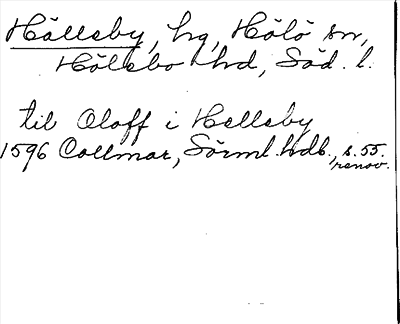 Hällsby, hg, Hölö sn,
Hölebo hd, Söd. l.
til Oloff i Hellsby
1596 Collmar, Sörml. hdb., s. 55.
renov.